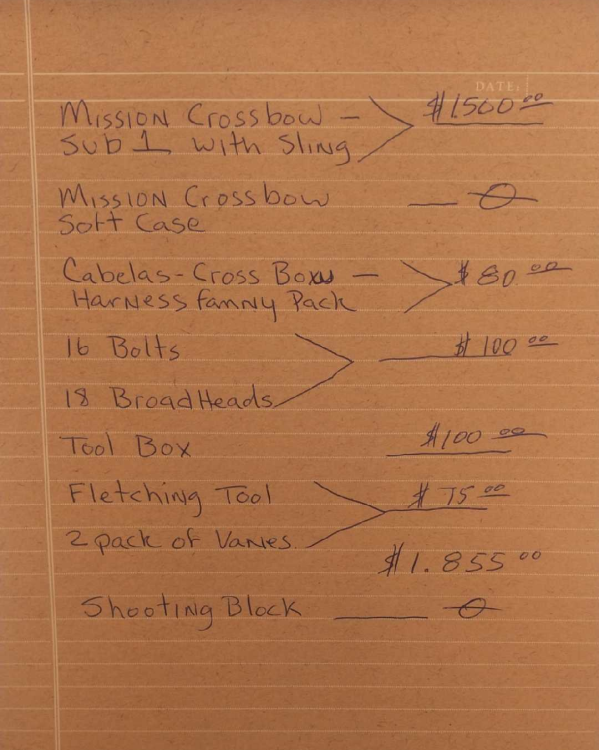 DATE:
Mission Crossbow – $1500.00
Sub 1 with Sling
Mission Crossbow — 0
Soft Case
Cabelas - Cross Bow – $80.00
Harness Fanny Pack
16 Bolts $100.00
18 BroadHeads
Tool Box $100.00
Fletching Tool $75.00
2 pack of Vanes
$1.855.00
Shooting Block — 0